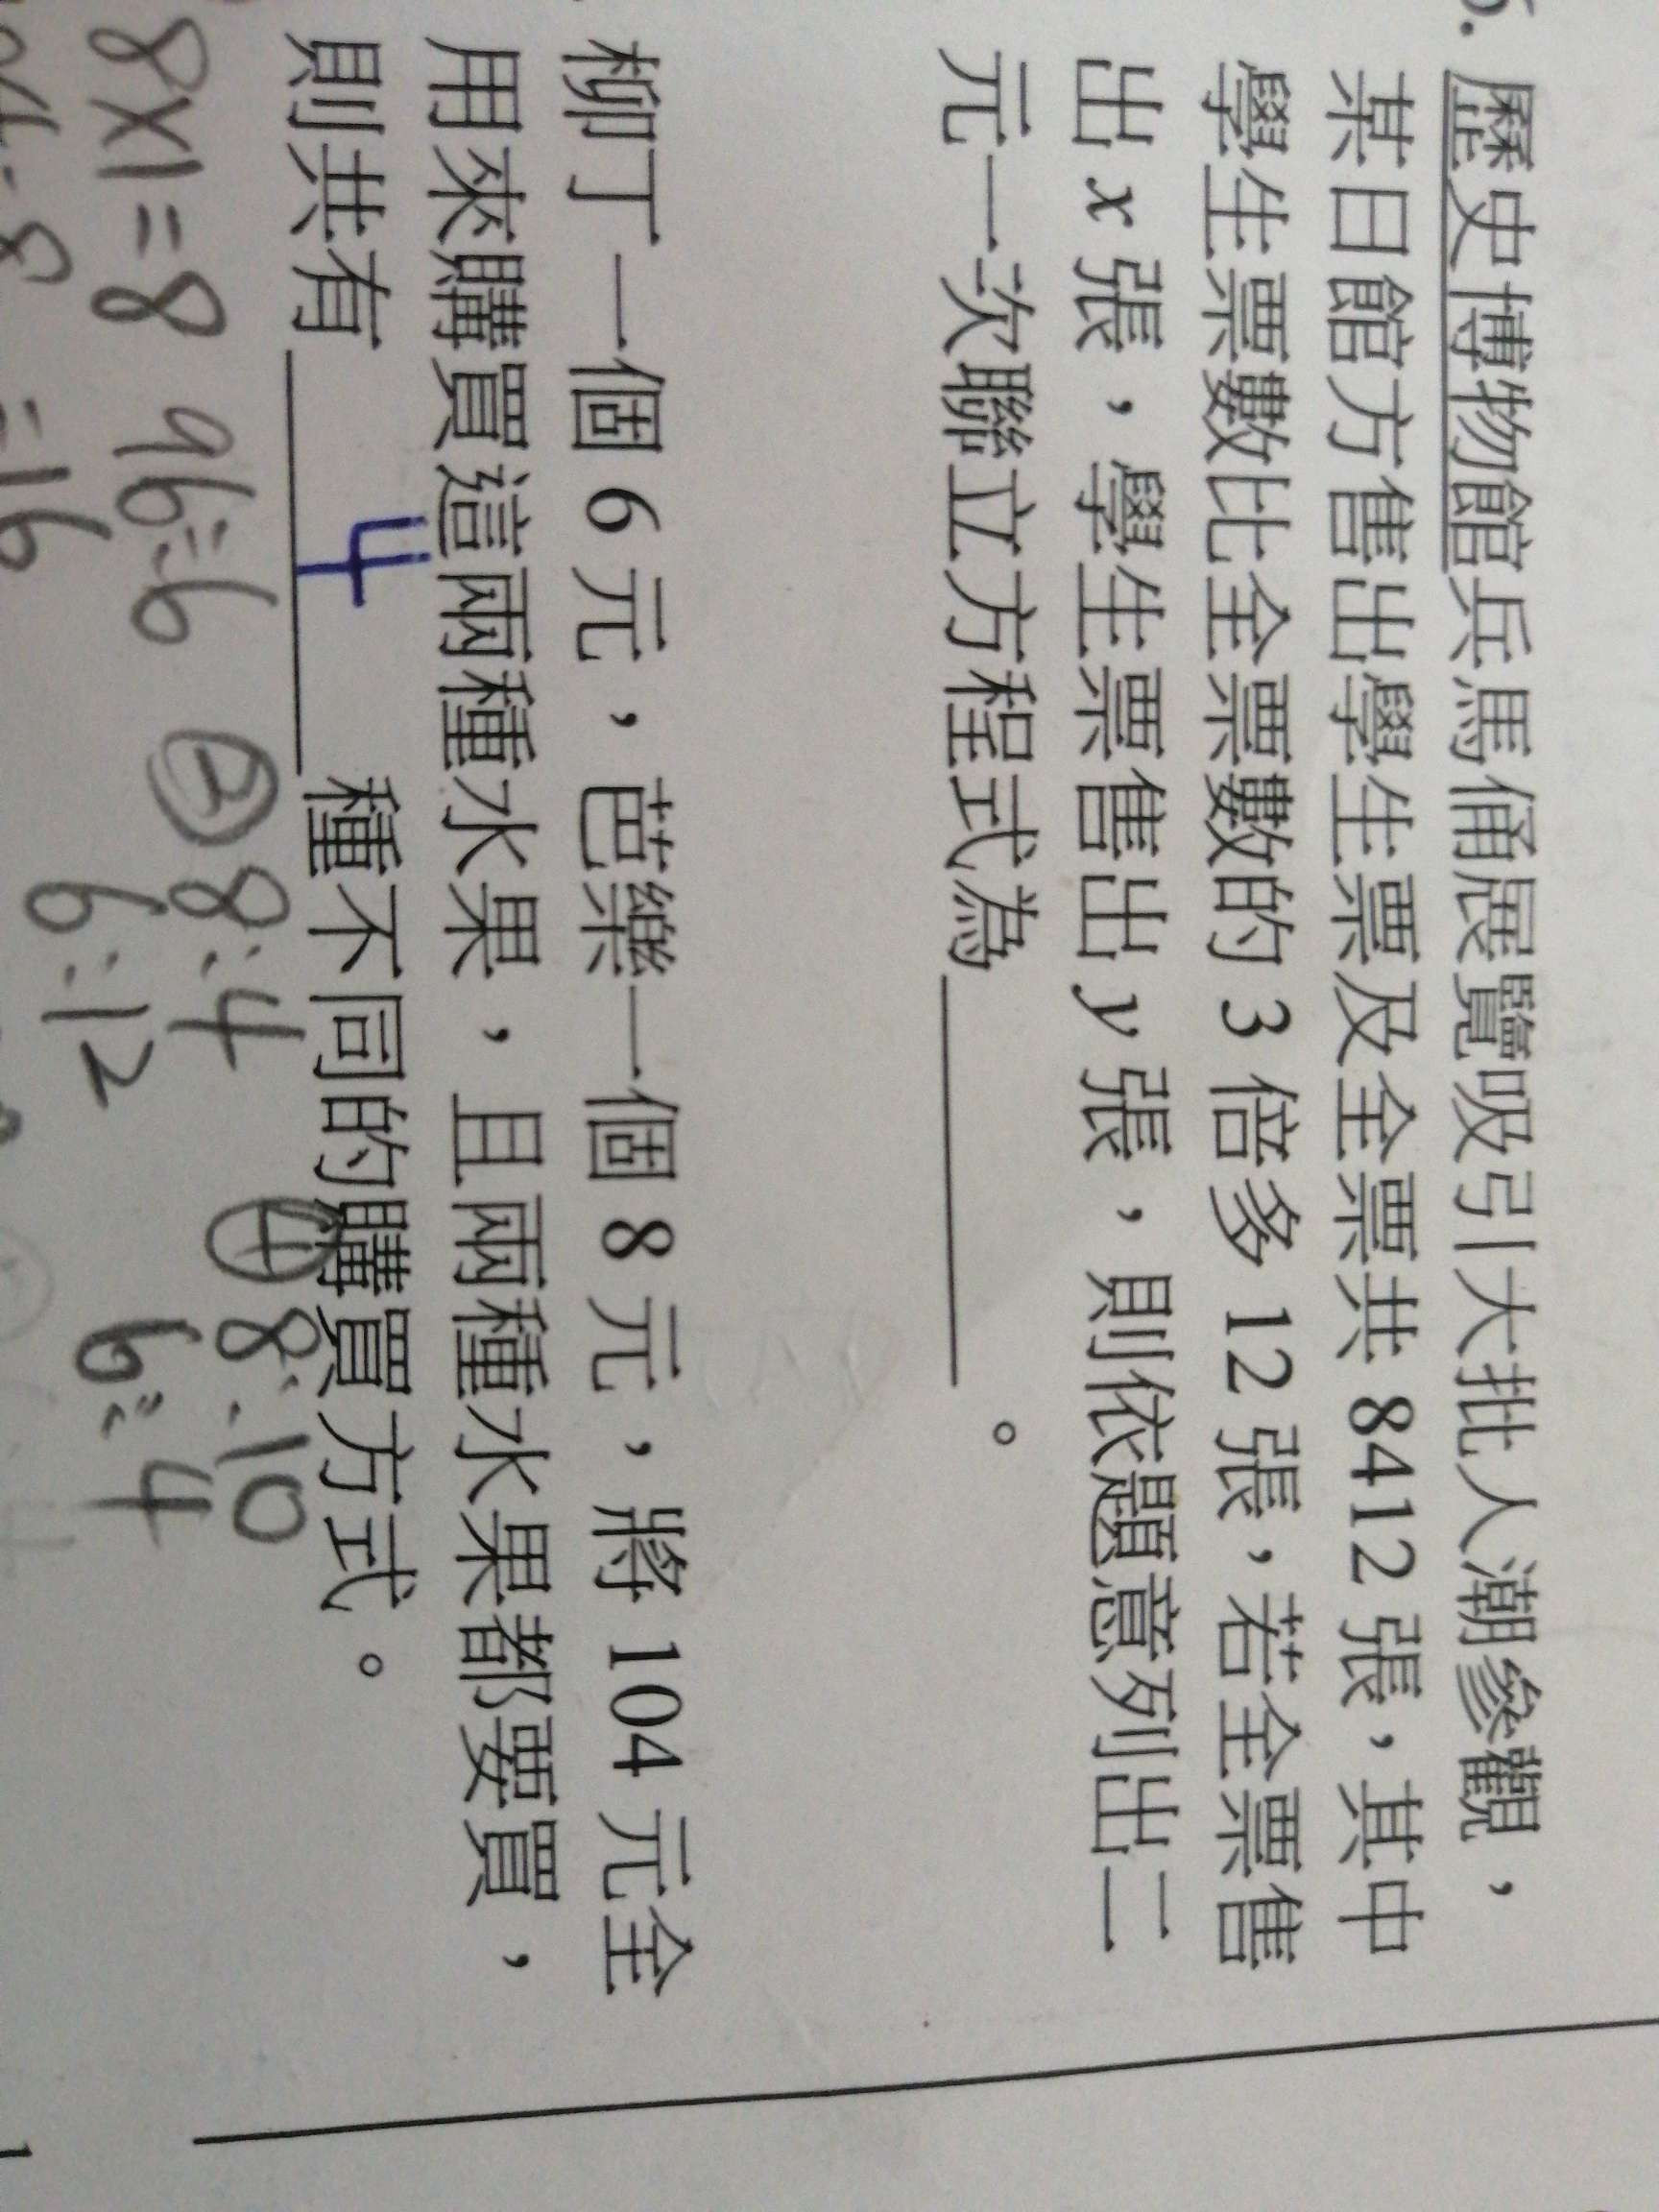 歷史博物館兵馬俑展覽吸引大批人潮參觀，
某日館方售出學生票及全票共 8412 張，其中
學生票數比全票數的 3 倍多 12 張，若全票售
出 x 張，學生票售出 y 張，則依題意列出二
元一次聯立方程式為＿＿＿＿。
柳丁一個 6 元，芭樂一個 8 元，將 104 元全
用來購買這兩種水果，且兩種水果都要買，
則共有 4 種不同的購買方式。
8×1=8 96÷6 ② 8:4 ④ 8:10
=16 6:12 6:4